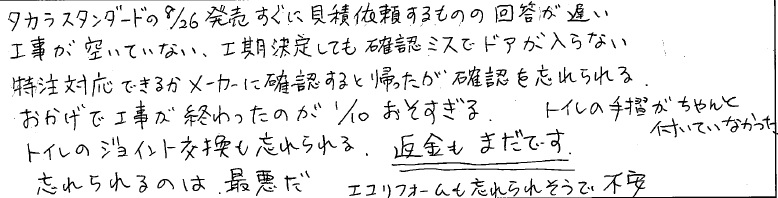 タカラスタンダードの8/26発売すぐに見積依頼するものの回答が遅い
工事が空いていない、工期決定しても確認ミスでドアが入らない
特注対応できるかメーカーに確認すると帰ったが確認を忘れられる.
おかげで工事が終わったのが1/10 おそすぎる. トイレの手摺がちゃんと付いていなかった
トイレのジョイント交換も忘れられる. 返金もまだです.
忘れられるのは最悪だ エコリフォームも忘れられそうで不安